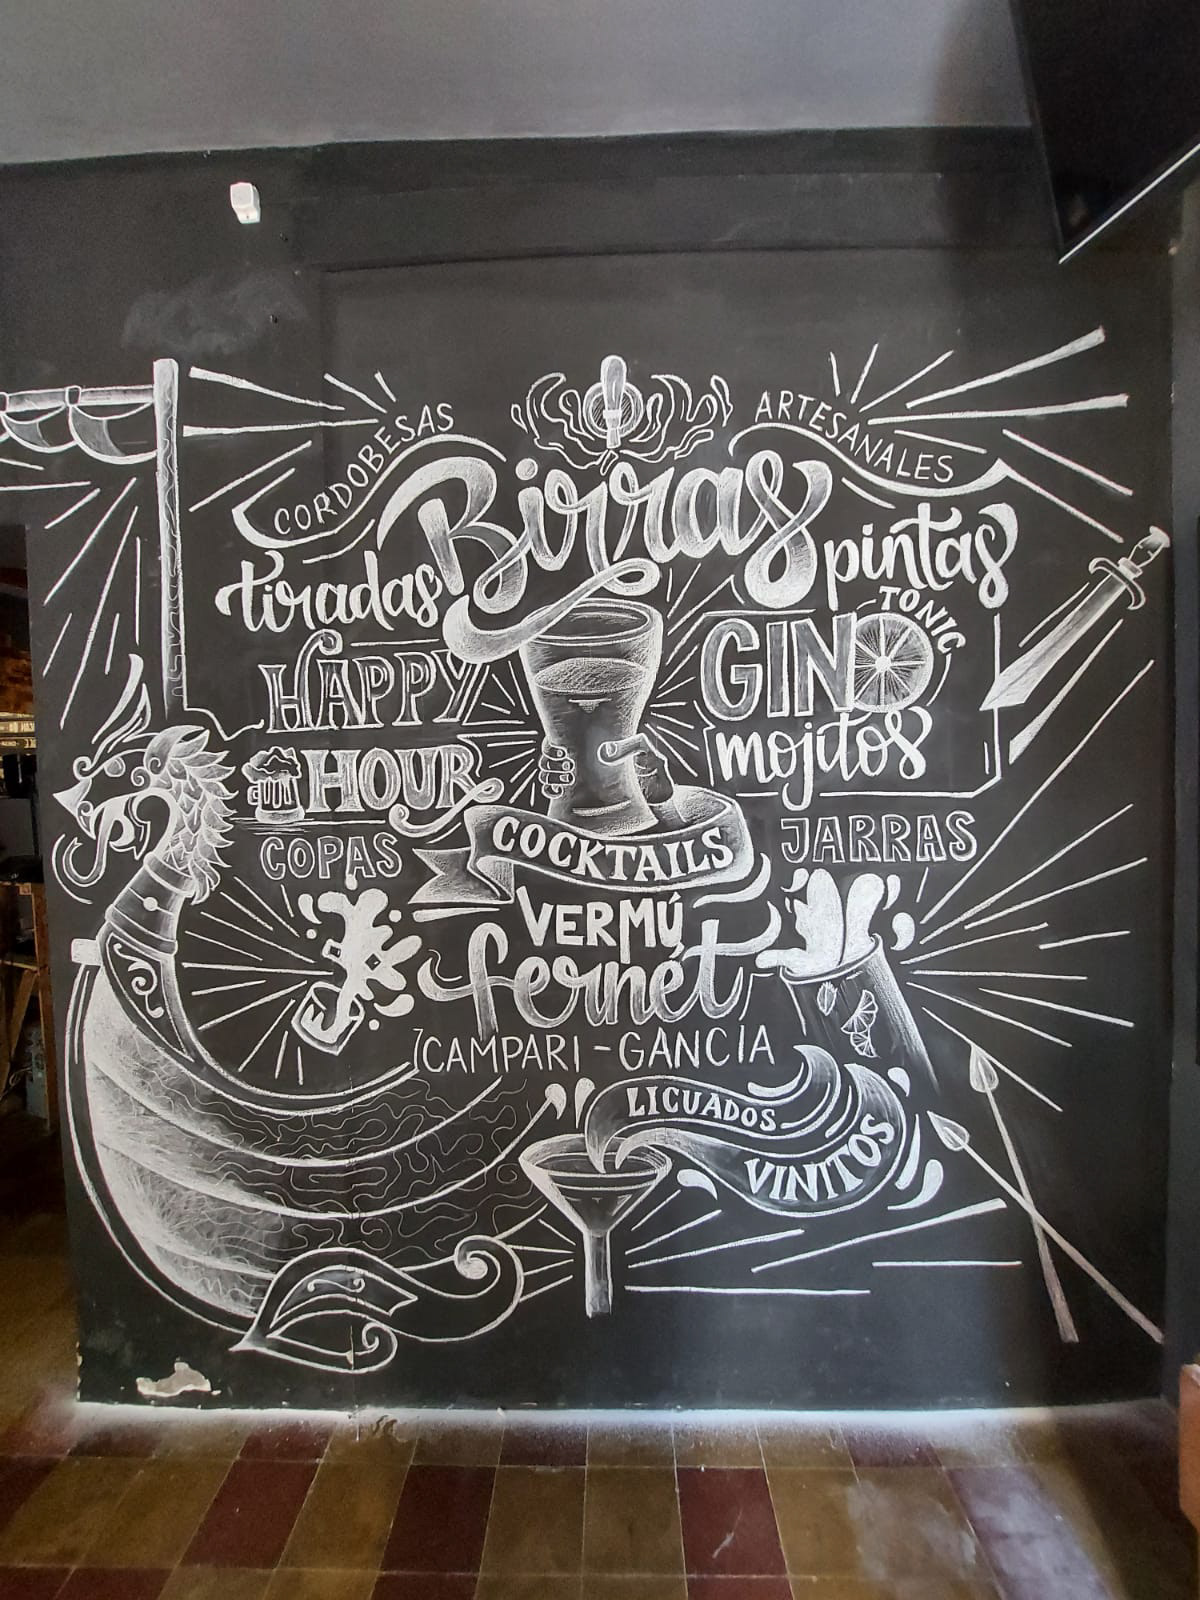 CORDOBESAS
ARTESANALES
Birras
tiradas
pintas
HAPPY
HOUR
GIN
TONIC
mojitos
COPAS
COCKTAILS
JARRAS
VERMÚ
fernet
CAMPARI - GANCIA
LICUADOS
VINITOS